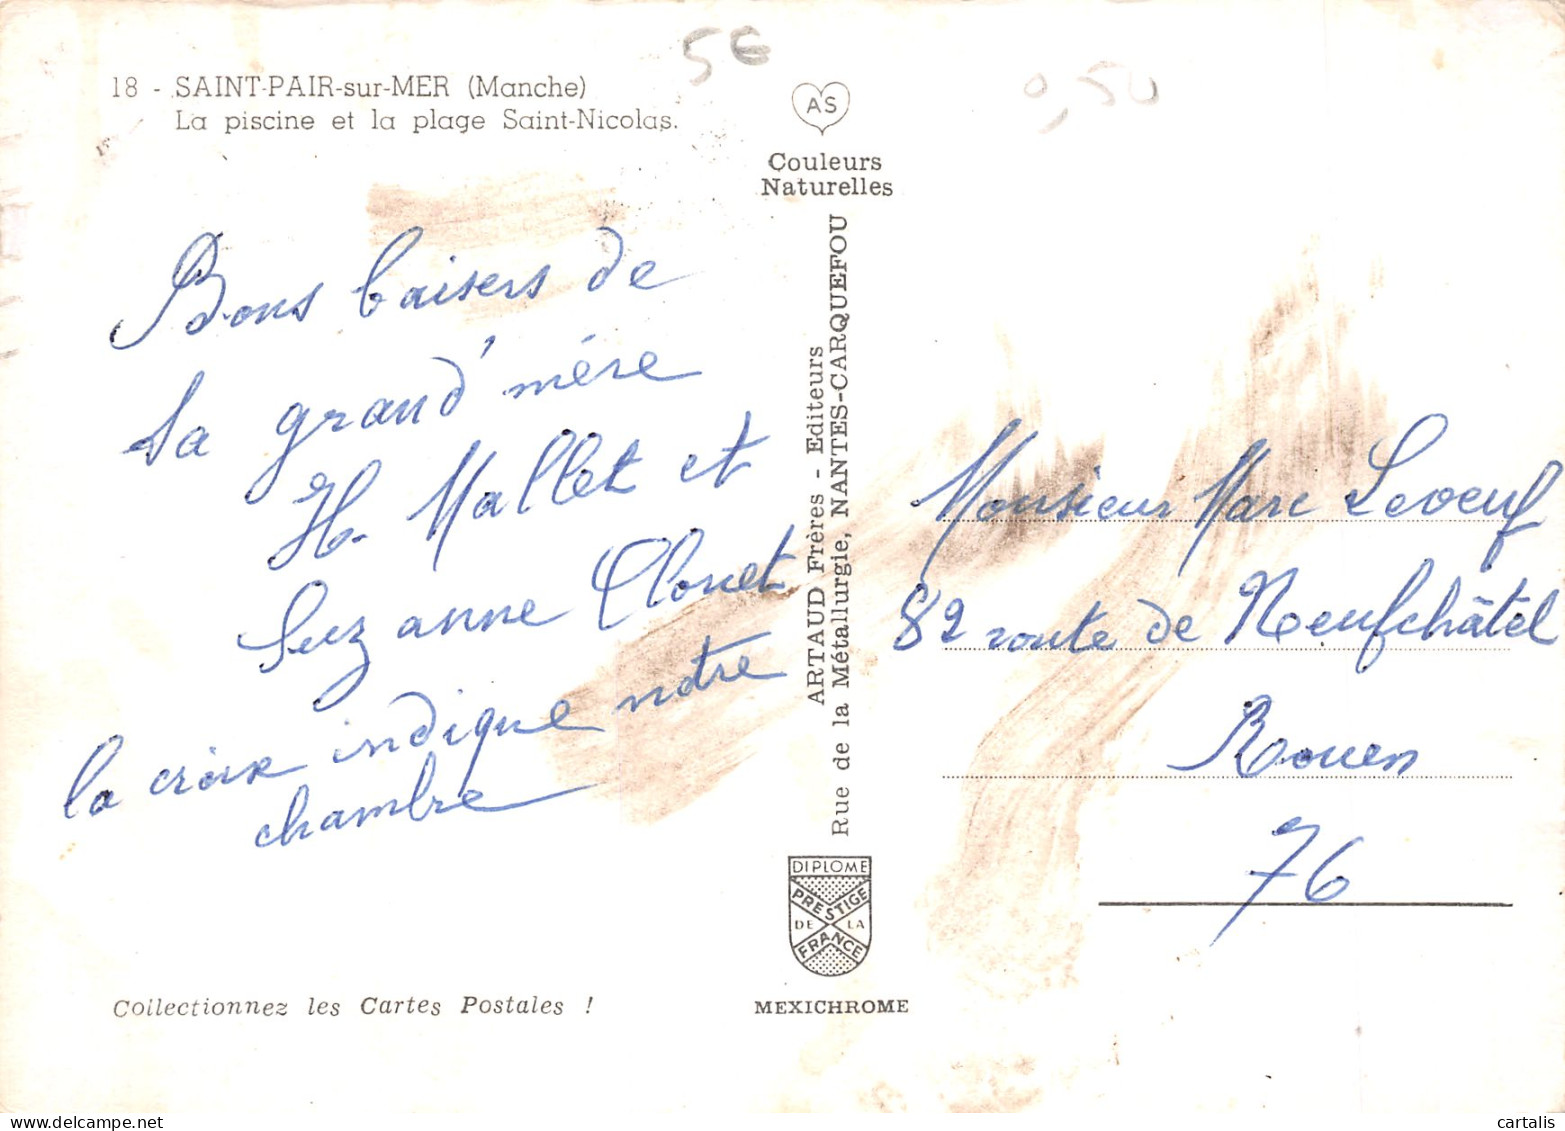 5€
0,50
18 - SAINT-PAIR-sur-MER (Manche)
La piscine et la plage Saint-Nicolas.
AS
Couleurs
Naturelles
Bons baisers de
sa grand'mère
H. Mallet et
Suzanne Clouet
la croix indique notre
chambre
ARTAUD Frères - Editeurs
Rue de la Métallurgie, NANTES-CARQUEFOU
Monsieur Marc Levoeuf
82 route de Neufchâtel
Rouen
76
DIPLOME
PRESTIGE
DE LA
FRANCE
Collectionnez les Cartes Postales !
MEXICHROME
cartalis